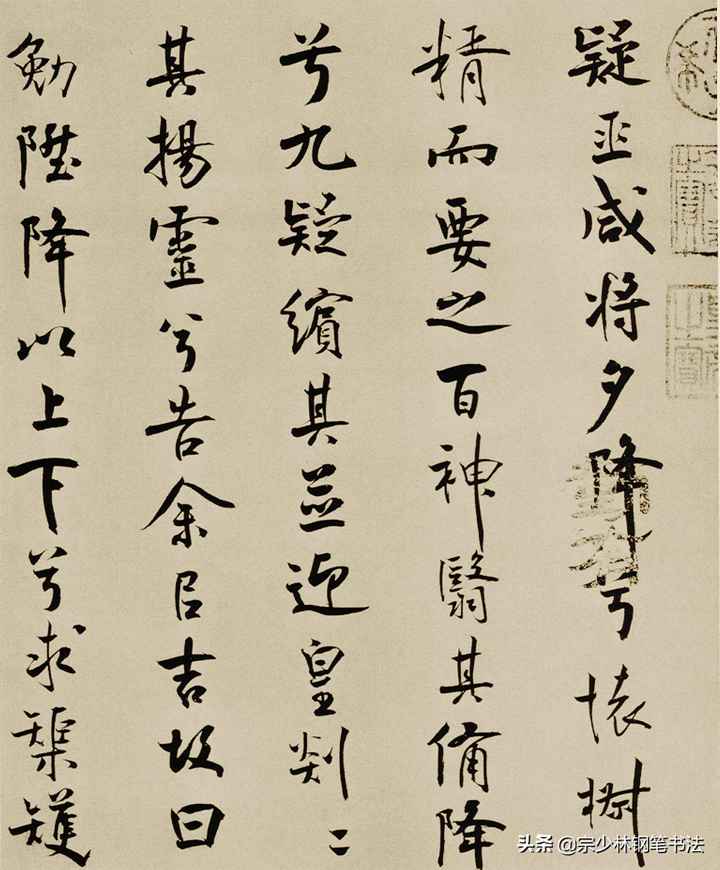 疑巫咸将夕降兮懐椒
精而要之百神翳其備降
兮九疑繽其並迎皇剡〻
其揚靈兮告余㠯吉故曰
勉陞降以上下兮求榘矱
头条 @宗少林钢笔书法